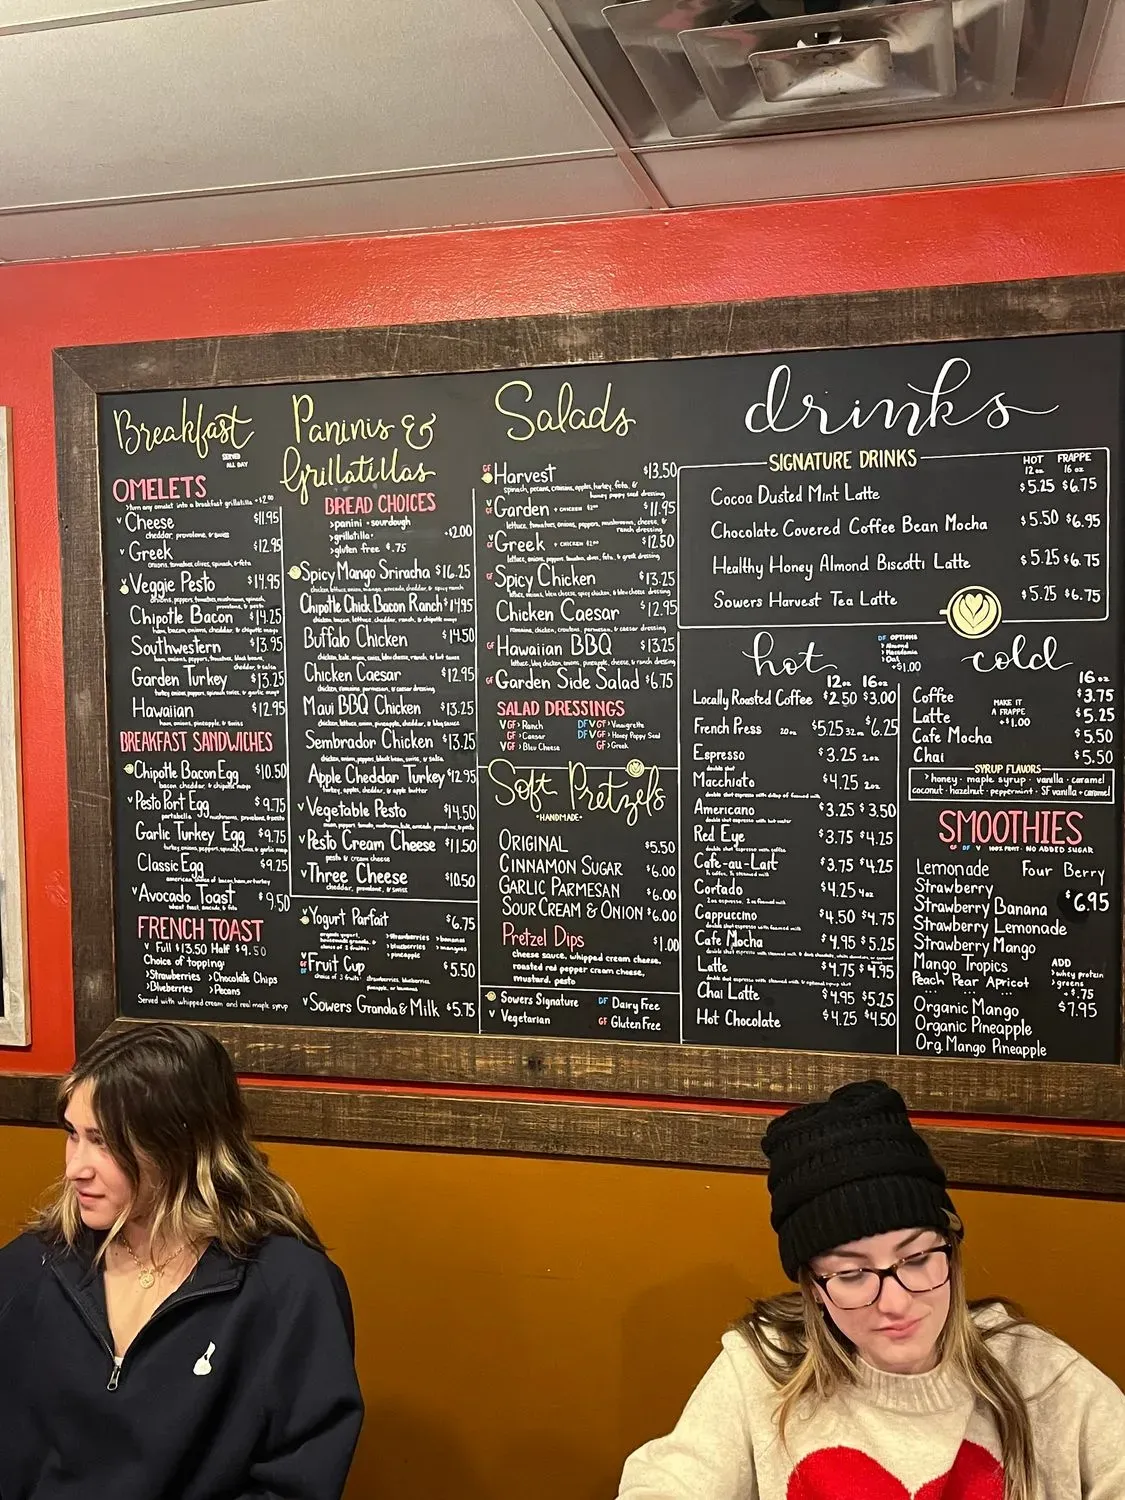 Breakfast
SERVED
ALL DAY
OMELETS
>turn any omelet into a breakfast grillatilla +$2.00
V Cheese $11.95
cheddar, provolone, & swiss
V Greek $12.95
onions, tomatoes, olives, spinach, & feta
V Veggie Pesto $14.95
onions, peppers, tomatoes, mushrooms, spinach, provolone, & pesto
Chipotle Bacon $14.25
ham, bacon, onions, cheddar, & chipotle mayo
Southwestern $13.95
ham, onions, peppers, tomatoes, black beans, cheddar, & salsa
Garden Turkey $13.25
turkey, onions, peppers, spinach, swiss, & garlic mayo
Hawaiian $12.95
ham, onions, pineapple, & swiss
BREAKFAST SANDWICHES
Chipotle Bacon Egg $10.50
bacon, cheddar, & chipotle mayo
V Pesto Port Egg $9.75
portabella mushrooms, provolone, & pesto
Garlic Turkey Egg $9.75
turkey, onions, peppers, spinach, swiss, & garlic mayo
Classic Egg $9.25
american, choice of bacon, ham, or turkey
V Avocado Toast $9.50
wheat toast, avocado, & feta
FRENCH TOAST
V Full $13.50 Half $9.50
Choice of topping:
>Strawberries >Chocolate Chips
>Blueberries >Pecans
Served with whipped cream and real maple syrup
Paninis &
Grillatillas
BREAD CHOICES
>panini · sourdough
>grillatilla · +$2.00
>gluten free $.75
Spicy Mango Sriracha $16.25
chicken, lettuce, onion, mango, avocado, cheddar, & spicy ranch
Chipotle Chick Bacon Ranch $14.95
chicken, bacon, lettuce, cheddar, ranch, & chipotle mayo
Buffalo Chicken $14.50
chicken, kale, onion, swiss, bleu cheese, ranch, & hot sauce
Chicken Caesar $12.95
chicken, romaine, parmesan, & caesar dressing
Maui BBQ Chicken $13.25
chicken, lettuce, onion, pineapple, cheddar, & bbq sauce
Sembrador Chicken $13.25
chicken, onion, peppers, black bean, swiss, & salsa
Apple Cheddar Turkey $12.95
turkey, apples, cheddar, & apple butter
V Vegetable Pesto $14.50
V Pesto Cream Cheese $11.50
pesto & cream cheese
V Three Cheese $10.50
cheddar, provolone, & swiss
V Yogurt Parfait $6.75
organic yogurt, housemade granola, & choice of 2 fruits:
>strawberries >bananas
>blueberries >mangoes
>pineapple
V GF DF Fruit Cup $5.50
choice of 3 fruits: strawberries, blueberries, pineapple, or bananas
V Sowers Granola & Milk $5.75
Salads
GF Harvest $13.50
spinach, pecans, craisins, apples, turkey, feta, & honey poppy seed dressing
V GF Garden + CHICKEN $2.00 $11.95
lettuce, tomatoes, onions, peppers, mushrooms, cheese, & ranch dressing
V GF Greek + CHICKEN $2.00 $12.50
lettuce, onions, peppers, tomatoes, olives, feta, & greek dressing
GF Spicy Chicken $13.25
lettuce, onions, & cheese, spicy chicken, & bleu cheese dressing
Chicken Caesar $12.95
romaine, chicken, croutons, parmesan, & caesar dressing
GF Hawaiian BBQ $13.25
lettuce, bbq chicken, onions, pineapple, cheese, & ranch dressing
GF Garden Side Salad $6.75
SALAD DRESSINGS
V GF > Ranch DF V GF > Vinaigrette
GF > Caesar DF V GF > Honey Poppy Seed
V GF > Bleu Cheese GF > Greek
Soft Pretzels
·HANDMADE·
ORIGINAL $5.50
CINNAMON SUGAR $6.00
GARLIC PARMESAN $6.00
SOUR CREAM & ONION $6.00
Pretzel Dips $1.00
cheese sauce, whipped cream cheese,
roasted red pepper cream cheese,
mustard, pesto
Sowers Signature DF Dairy Free
V Vegetarian GF Gluten Free
drinks
SIGNATURE DRINKS
HOT FRAPPE
12 oz 16 oz
Cocoa Dusted Mint Latte $5.25 $6.75
Chocolate Covered Coffee Bean Mocha $5.50 $6.95
Healthy Honey Almond Biscotti Latte $5.25 $6.75
Sowers Harvest Tea Latte $5.25 $6.75
hot
DF OPTIONS
>Almond
>Macadamia
>Oat
+$1.00
12oz 16oz
Locally Roasted Coffee $2.50 $3.00
French Press 20oz $5.25 32oz $6.25
Espresso $3.25 2oz
double shot
Macchiato $4.25 2oz
double shot espresso with dollop of foamed milk
Americano $3.25 $3.50
double shot espresso with hot water
Red Eye $3.75 $4.25
double shot espresso with coffee
Cafe-au-Lait $3.75 $4.25
½ coffee, ½ steamed milk
Cortado $4.25 4oz
2oz espresso, 2oz foamed milk
Cappuccino $4.50 $4.75
double shot espresso with foamed milk
Cafe Mocha $4.95 $5.25
Latte $4.75 $4.95
Chai Latte $4.95 $5.25
Hot Chocolate $4.25 $4.50
cold
16 oz
Coffee $3.75
Latte $5.25
Cafe Mocha $5.50
Chai $5.50
MAKE IT
A FRAPPE
+$1.00
SYRUP FLAVORS
>honey · maple syrup · vanilla · caramel
coconut · hazelnut · peppermint · SF vanilla + caramel
SMOOTHIES
GF DF V 100% FRUIT · NO ADDED SUGAR
Lemonade Four Berry
Strawberry
Strawberry Banana $6.95
Strawberry Lemonade
Strawberry Mango
Mango Tropics
Peach Pear Apricot
ADD
>whey protein
>greens
+$.75
Organic Mango $7.95
Organic Pineapple
Org. Mango Pineapple